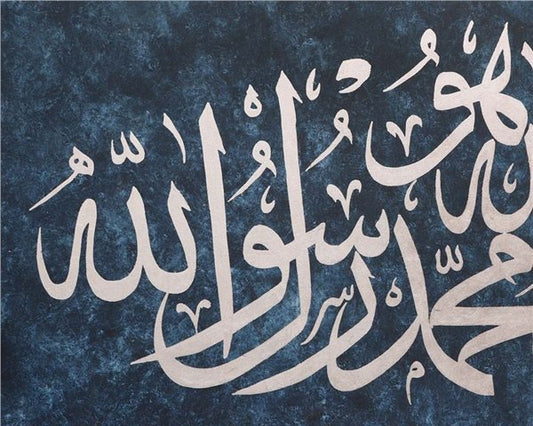 هو
محمد رسول الله